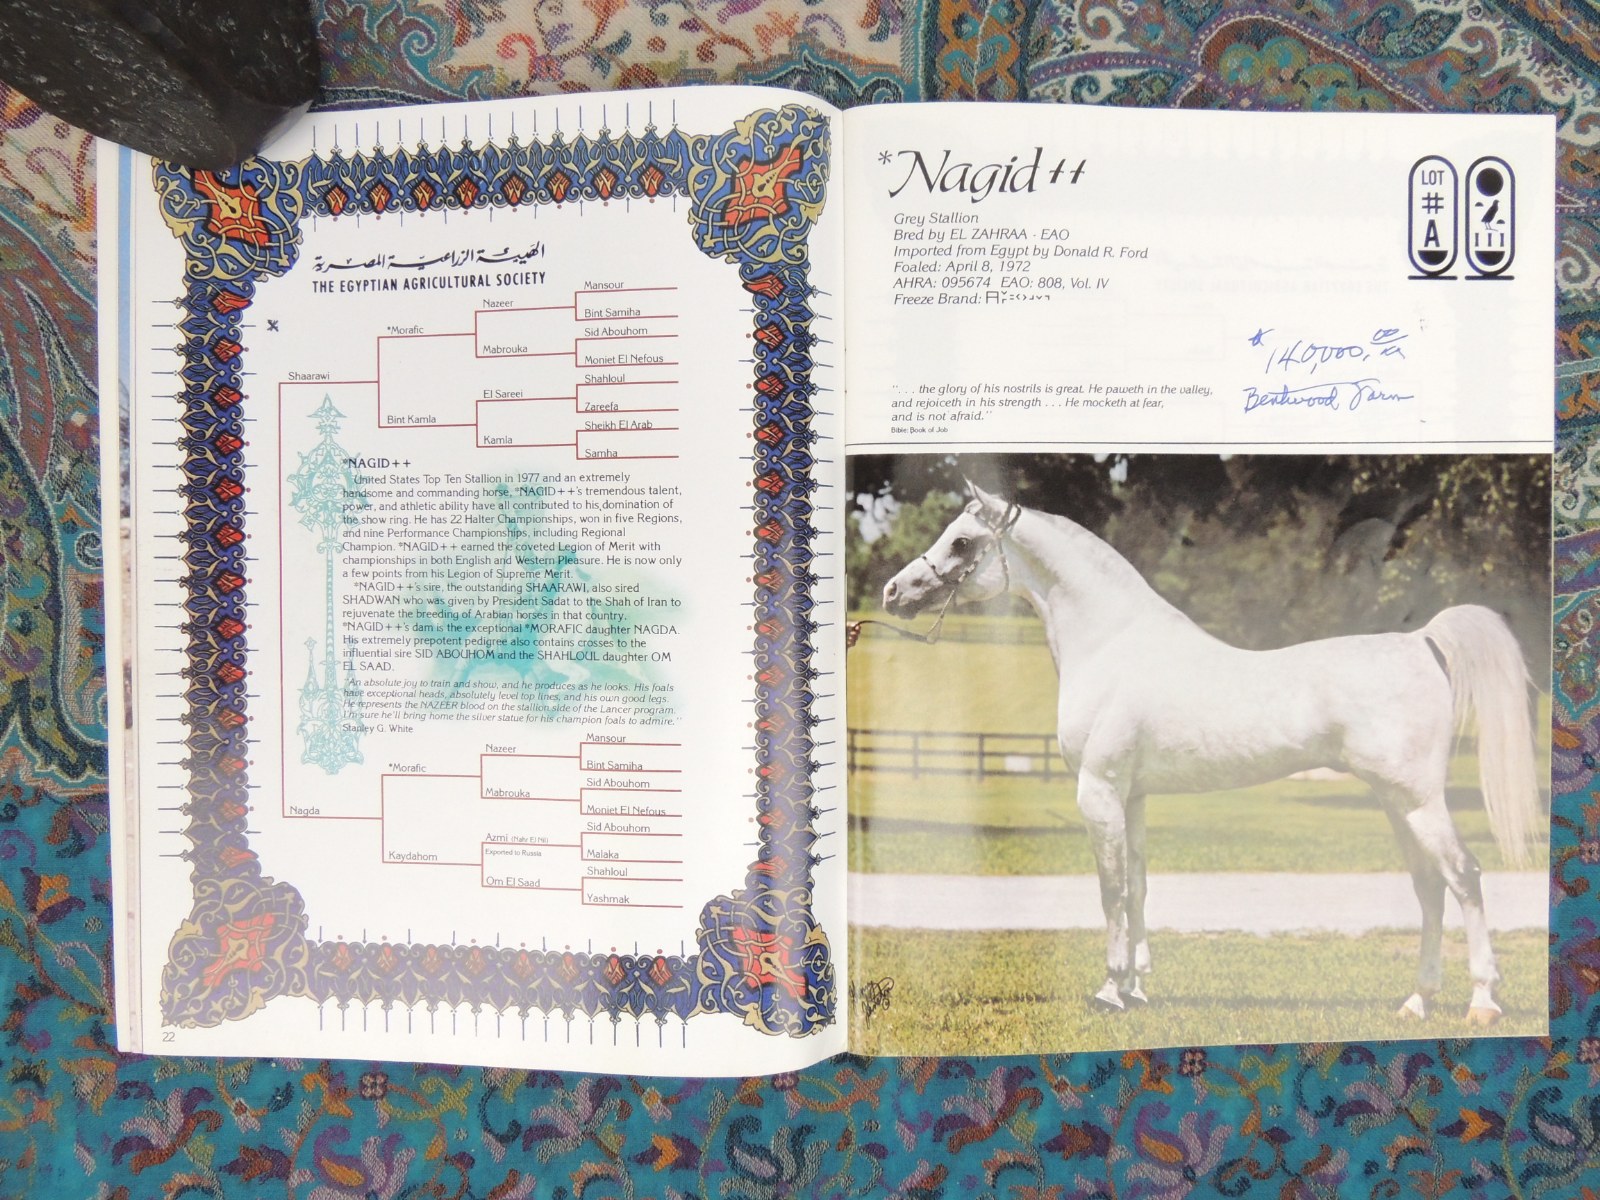 الهيئة الزراعية المصرية
THE EGYPTIAN AGRICULTURAL SOCIETY
Shaarawi
*Morafic
Nazeer
Mansour
Bint Samiha
Mabrouka
Sid Abouhom
Moniet El Nefous
Bint Kamla
El Sareei
Shahloul
Zareefa
Kamla
Sheikh El Arab
Samha
*NAGID++
United States Top Ten Stallion in 1977 and an extremely
handsome and commanding horse, *NAGID++'s tremendous talent,
power, and athletic ability have all contributed to his domination of
the show ring. He has 22 Halter Championships, won in five Regions,
and nine Performance Championships, including Regional
Champion. *NAGID++ earned the coveted Legion of Merit with
championships in both English and Western Pleasure. He is now only
a few points from his Legion of Supreme Merit.
*NAGID++'s sire, the outstanding SHAARAWI, also sired
SHADWAN who was given by President Sadat to the Shah of Iran to
rejuvenate the breeding of Arabian horses in that country.
*NAGID++'s dam is the exceptional *MORAFIC daughter NAGDA.
His extremely prepotent pedigree also contains crosses to the
influential sire SID ABOUHOM and the SHAHLOUL daughter OM
EL SAAD.
"An absolute joy to train and show, and he produces as he looks. His foals
have exceptional heads, absolutely level top lines, and his own good legs.
He represents the NAZEER blood on the stallion side of the Lancer program.
I'm sure he'll bring home the silver statue for his champion foals to admire."
Stanley G. White
Nagda
*Morafic
Nazeer
Mansour
Bint Samiha
Mabrouka
Sid Abouhom
Moniet El Nefous
Kaydahom
Azmi (Nahr El Nil)
Exported to Russia
Sid Abouhom
Malaka
Om El Saad
Shahloul
Yashmak
22
*Nagid++
Grey Stallion
Bred by EL ZAHRAA - EAO
Imported from Egypt by Donald R. Ford
Foaled: April 8, 1972
AHRA: 095674 EAO: 808, Vol. IV
Freeze Brand:
LOT
#
A
140,000.00
Bentwood Farm
". . . the glory of his nostrils is great. He paweth in the valley,
and rejoiceth in his strength . . . He mocketh at fear,
and is not afraid."
Bible: Book of Job